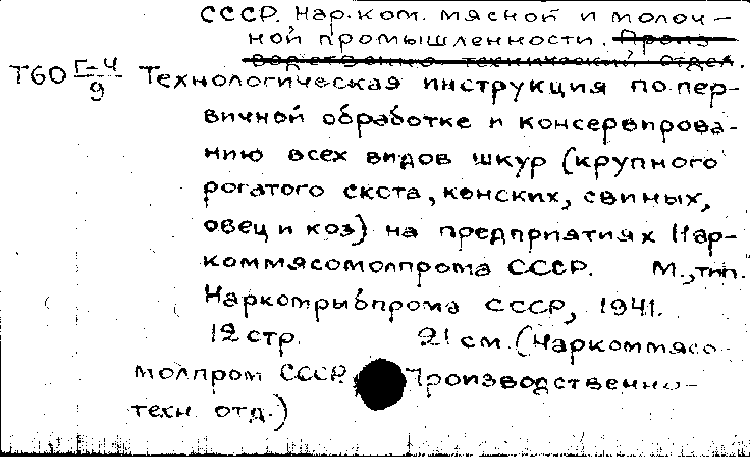 СССР. Нар. ком. мясной и молоч-
ной промышленности. Произ-
водственно технический отдел.
Т60 Г-4/9 Технологическая инструкция по пер-
вичной обработке и консервирова-
нию всех видов шкур (крупного
рогатого скота, конских, свиных,
овец и коз) на предприятиях Нар-
коммясомолпрома СССР. М., тип.
Наркомрыбпрома СССР, 1941.
12 стр. 21 см. (Наркоммясо-
молпром СССР. Производственно-
техн. отд.)